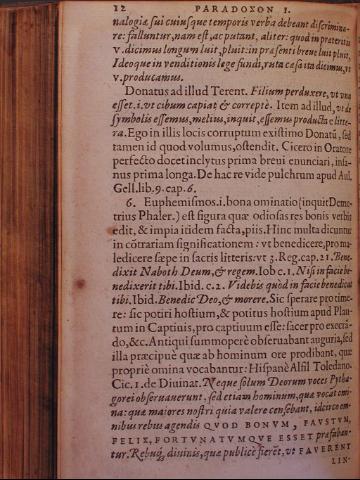 12 PARADOXON I.
nalogiæ, sui cuiusque temporis verba debeant discrimina-
re: falluntur, nam est, ac putant, aliter: quod in præteritis
v. dicimus longum luit, pluit: in præsenti breve luit pluit,
Ideoque in venditionis lege fundi, ruta cæsa ita dicimus, vt
v. producamus.
Donatus ad illud Terent. Filium perduxere, vt vna
esset. i. vt cibum capiat & correptè. Item ad illud, vt de
symbolis essemus, melius, inquit, essemus producta e litte-
ra. Ego in illis locis corruptum existimo Donatū, sed
tamen id quod volumus, ostendit. Cicero in Oratore
perfecto docet inclytus prima breui enunciari, insa-
nus prima longa. De hac re vide pulchrum apud Aul.
Gell. lib. 9. cap. 6.
6. Euphemismos. i. bona ominatio (inquit Deme-
trius Phaler.) est figura quæ odiosas res bonis verbis
edit, & impia itidem facta, piis. Hinc multa dicuntur
in cōtrariam significationem: vt benedicere, pro ma-
ledicere sæpe in sacris litteris: vt 3. Reg. cap. 21. Bene-
dixit Naboth Deum, & regem. Iob c. 1. Nisi in facie be-
nedixerit tibi. Ibid. c. 2. Videbis quòd in facie benedicat
tibi. Ibid. Benedic Deo, & morere. Sic sperare pro time-
re: sic potiri hostium, & potitus hostium apud Plau-
tum in Captiuis, pro captiuum esse: sacer pro execrā-
do, &c. Antiqui summopere obseruabant auguria, sed
illa præcipuè quæ ab hominum ore prodibant, quæ
propriè omina vocabantur: Hispanè Alfil Toledano.
Cic. 1. de Diuinat. Neque solum Deorum voces Pytha-
gorei obseruauerunt, sed etiam hominum, quæ vocāt omi-
na: quæ maiores nostri quia valere censebant, idcirco om-
nibus rebus agendis QUOD BONUM, FAUSTUM,
FELIX, FORTUNATUMQUE ESSET præfaban-
tur. Rebusq́; diuinis, quæ publicè fierēt, vt FAVERENT
LIN-